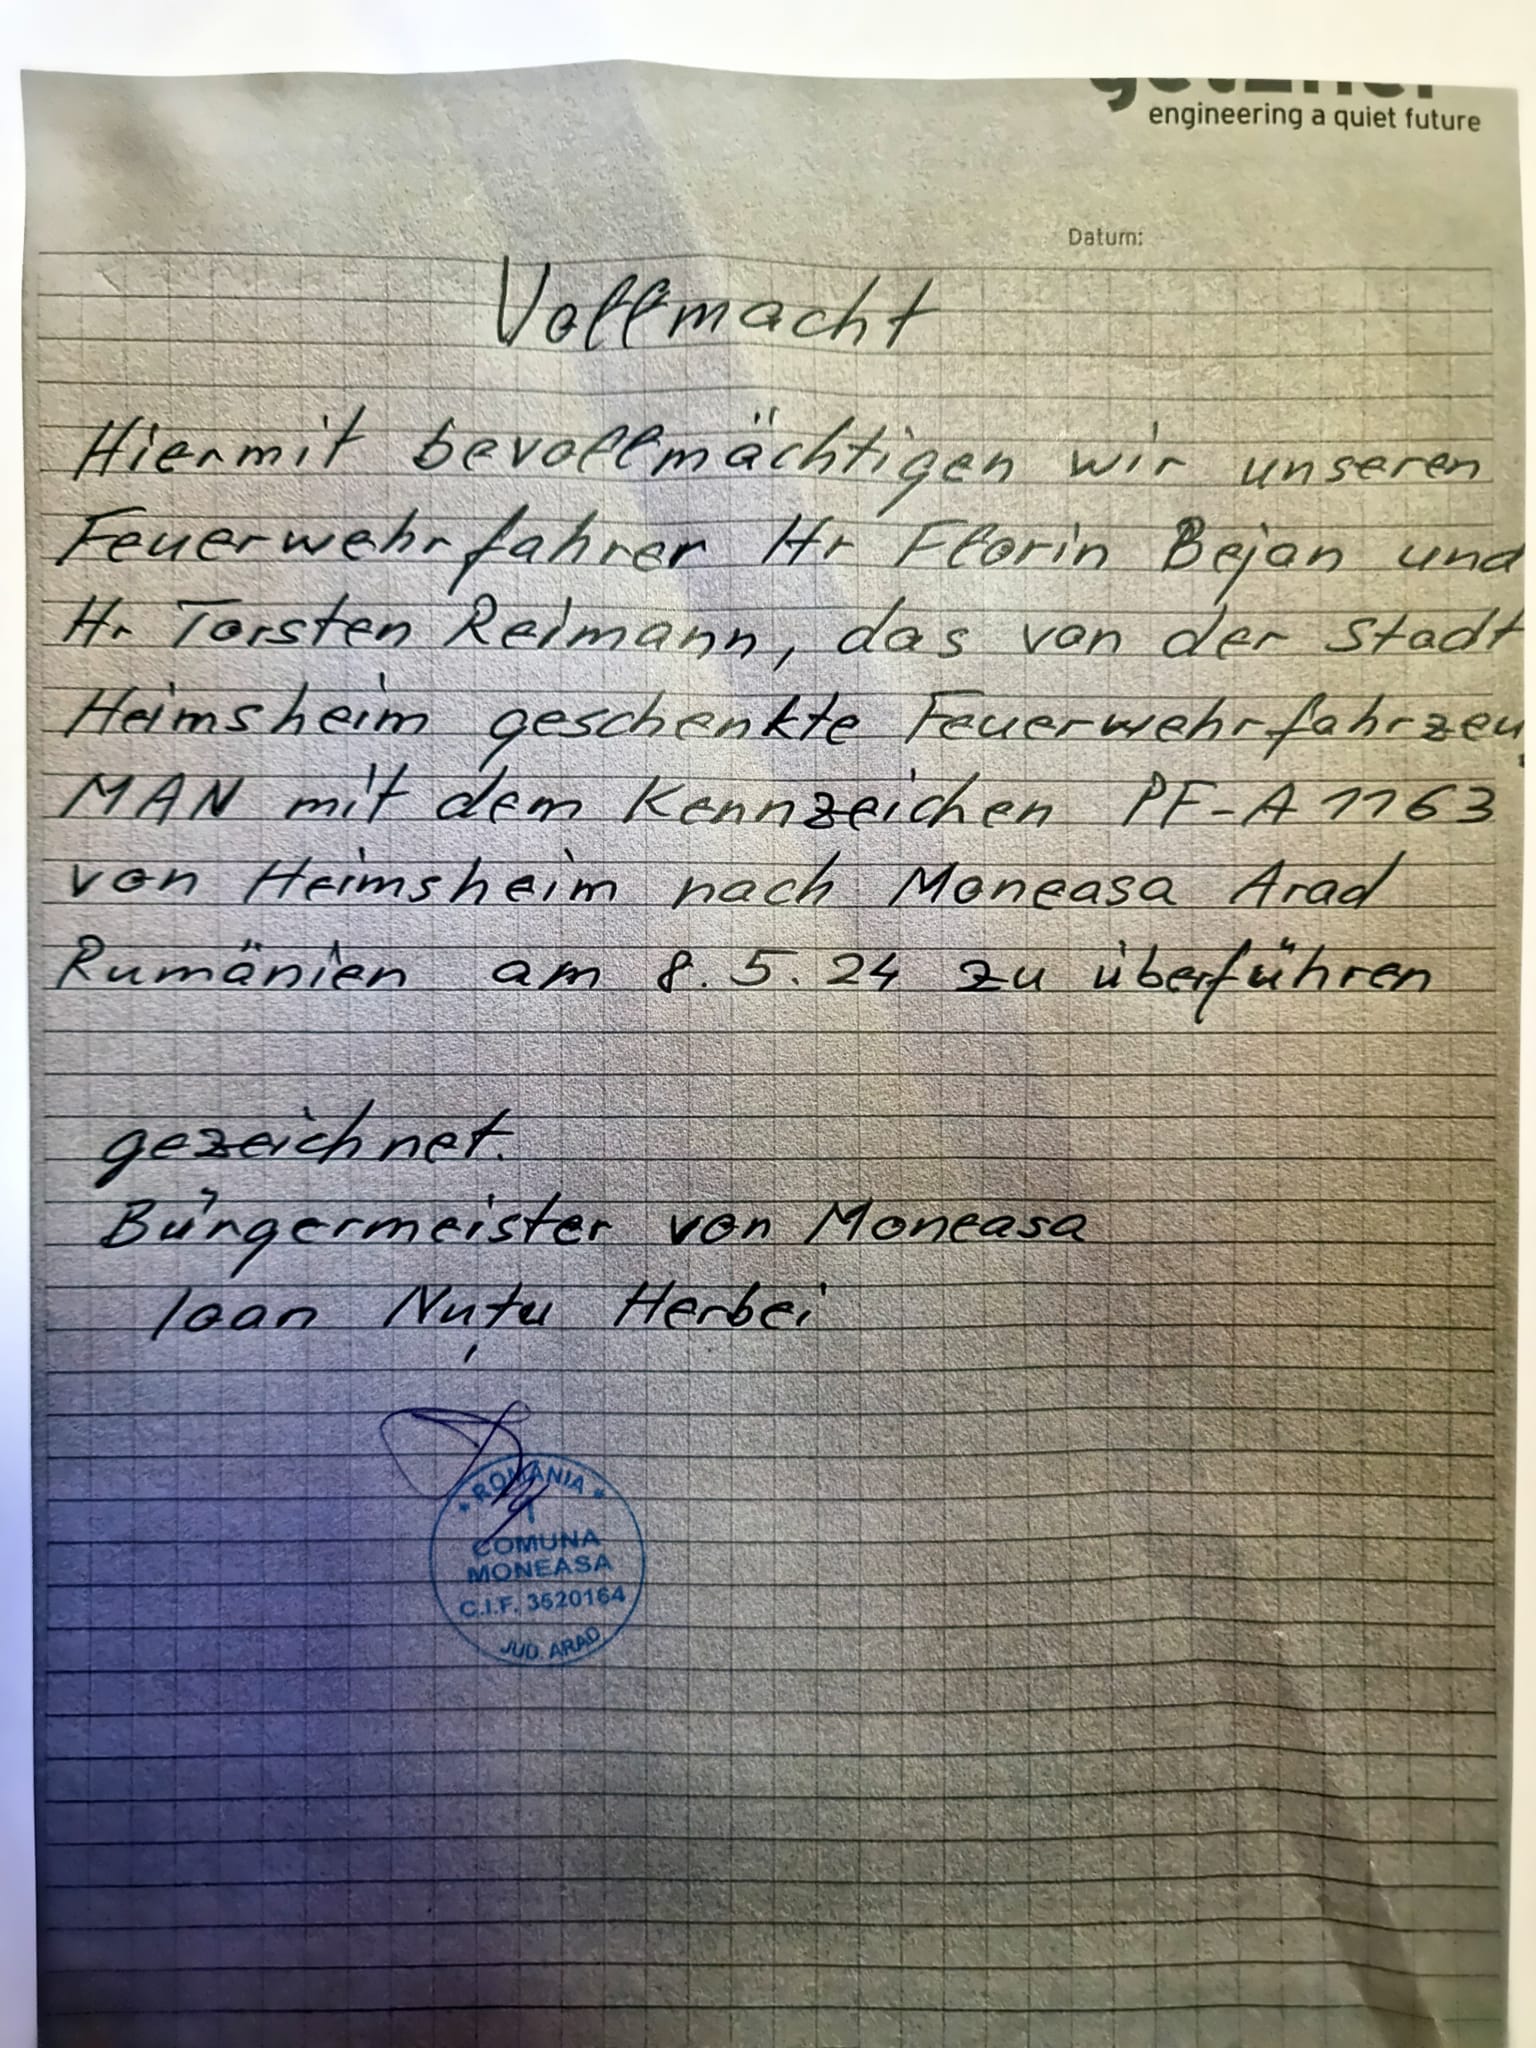 getzner
engineering a quiet future
Datum:
Vollmacht
Hiermit bevollmächtigen wir unseren
Feuerwehrfahrer Hr Florin Bejan und
Hr Torsten Reimann, das von der Stadt
Heimsheim geschenkte Feuerwehrfahrzeu
MAN mit dem Kennzeichen PF-A 1163
von Heimsheim nach Moneasa Arad
Rumänien am 8.5.24 zu überführen
gezeichnet.
Bürgermeister von Moneasa
Ioan Nuțu Herbei
* ROMÂNIA *
COMUNA
MONEASA
C.I.F. 3520164
JUD. ARAD